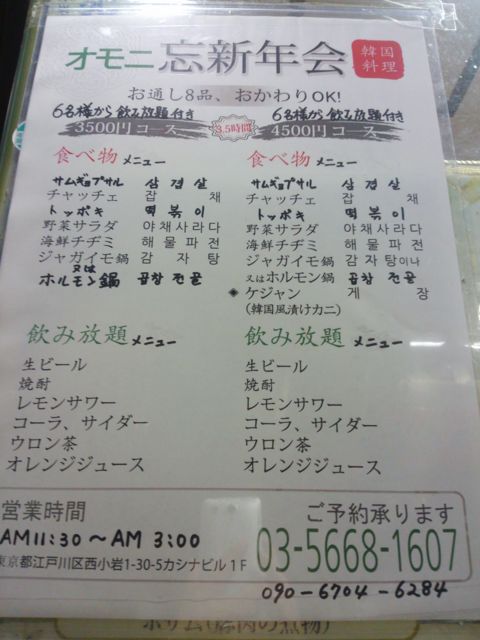 オモニ 忘新年会 韓国料理
お通し8品、おかわりOK!
6名様から飲み放題付き
3500円コース
3.5時間
6名様から飲み放題付き
4500円コース
食べ物メニュー
サムギョプサル 삼겹살
チャッチェ 잡채
トッポキ 떡볶이
野菜サラダ 야채사라다
海鮮チヂミ 해물파전
ジャガイモ鍋 감자탕
又は
ホルモン鍋 곱창전골
食べ物メニュー
サムギョプサル 삼겹살
チャッチェ 잡채
トッポキ 떡볶이
野菜サラダ 야채사라다
海鮮チヂミ 해물파전
ジャガイモ鍋 감자탕이나
又はホルモン鍋 곱창전골
◈ケジャン 게장
(韓国風漬けカニ)
飲み放題メニュー
生ビール
焼酎
レモンサワー
コーラ、サイダー
ウロン茶
オレンジジュース
飲み放題メニュー
生ビール
焼酎
レモンサワー
コーラ、サイダー
ウロン茶
オレンジジュース
営業時間
AM11:30～AM 3:00
東京都江戸川区西小岩1-30-5カシナビル1F
ご予約承ります
03-5668-1607
090-6704-6284